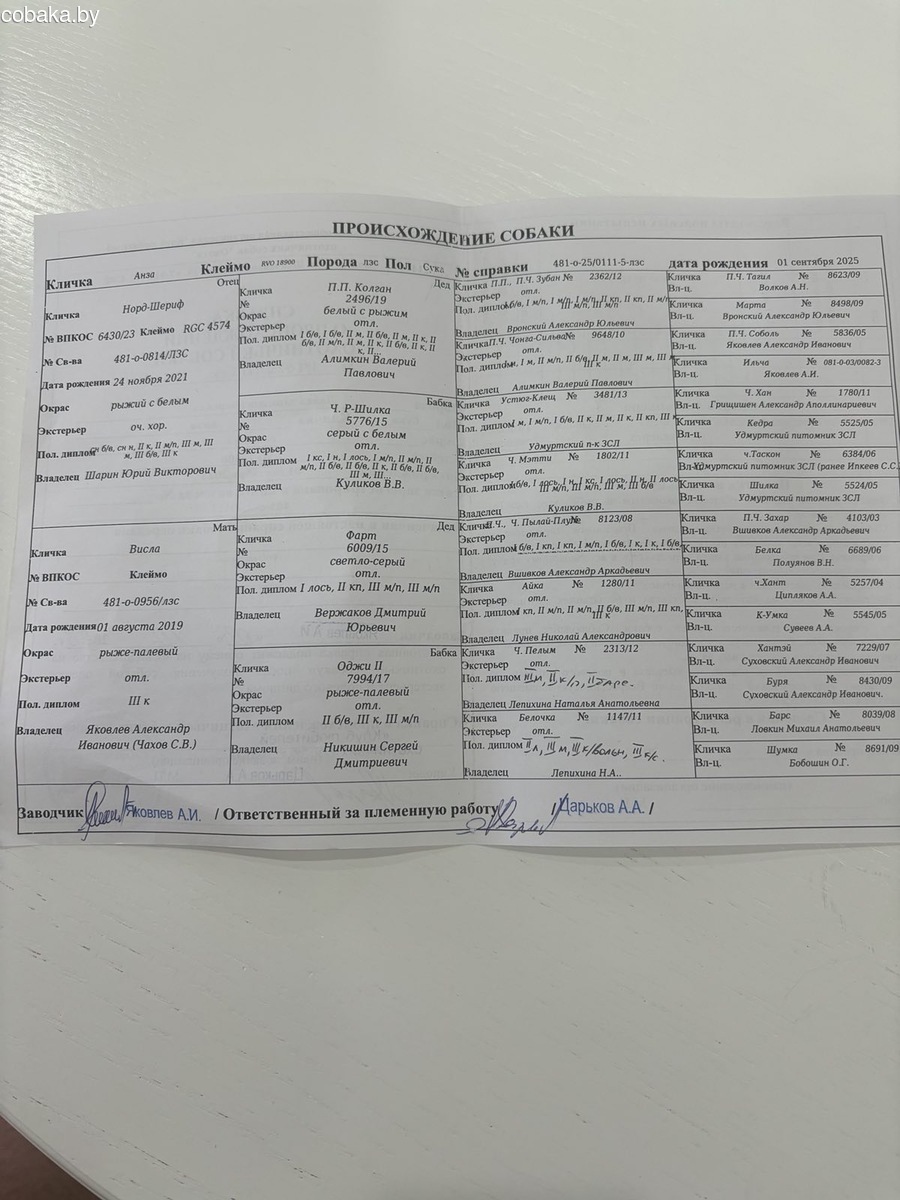 cobaka.by
ПРОИСХОЖДЕНИЕ СОБАКИ
Кличка Анза Клеймо RVO 18900 Порода лзс Пол Сука № справки 481-о-25/0111-5-лзс дата рождения 01 сентября 2025
Отец
Кличка Норд-Шериф
№ ВПКОС 6430/23 Клеймо RGC 4574
№ Св-ва 481-о-0814/ЛЗС
Дата рождения 24 ноября 2021
Окрас рыжий с белым
Экстерьер оч. хор.
Пол. диплом б/в, сн н, II к, II м/п, III м, III
м, III б/в, III к
Владелец Шарин Юрий Викторович
Мать
Кличка Висла
№ ВПКОС Клеймо
№ Св-ва 481-о-0956/лзс
Дата рождения 01 августа 2019
Окрас рыже-палевый
Экстерьер отл.
Пол. диплом III к
Владелец Яковлев Александр
Иванович (Чахов С.В.)
Дед
Кличка П.П. Колган
№ 2496/19
Окрас белый с рыжим
Экстерьер отл.
Пол. диплом I б/в, I б/в, II м, II б/в, II м, II к, II
б/в, II м/п, II м, II к, II б/в, II к, II
к, II...
Владелец Алимкин Валерий
Павлович
Бабка
Кличка Ч. Р-Шилка
№ 5776/15
Окрас серый с белым
Экстерьер отл.
Пол. диплом I кс, I н, I лось, I м/п, II м/п, II
м/п, II б/в, II б/в, II к, II б/в, II б/в,
III м, III...
Владелец Куликов В.В.
Дед
Кличка Фарт
№ 6009/15
Окрас светло-серый
Экстерьер отл.
Пол. диплом I лось, II кп, III м/п, III м/п
Владелец Вержаков Дмитрий
Юрьевич
Бабка
Кличка Оджи II
№ 7994/17
Окрас рыже-палевый
Экстерьер отл.
Пол. диплом II б/в, III к, III м/п
Владелец Никишин Сергей
Дмитриевич
Кличка П.П., П.Ч. Зубан № 2362/12
Экстерьер отл.
Пол. диплом б/в, I м/п, I м/п, I м/п, II кп, II кп, II м/п
III м/п, III м/п
Владелец Вронский Александр Юльевич
Кличка П.Ч. Чонга-Сильва № 9648/10
Экстерьер отл.
Пол. диплом I м, II м/п, II б/в, II м, II м, III м, III
III к
Владелец Алимкин Валерий Павлович
Кличка Устюг-Клещ № 3481/13
Экстерьер отл.
Пол. диплом I м, I м/п, I б/в, II к, II м, II к, II кп, III
Владелец Удмуртский п-к ЗСЛ
Кличка Ч. Мэтти № 1802/11
Экстерьер отл.
Пол. диплом б/в, I лось, I н, I кс, I лось, II н, II лось
III м/п, III м/п, III м, III б/в
Владелец Куликов В.В.
Кличка П.Ч., Ч. Пылай-Плут № 8123/08
Экстерьер отл.
Пол. диплом I б/в, I кп, I кп, I м/п, I б/в, I к, I к, I б/в,
Владелец Вшивков Александр Аркадьевич
Кличка Айка № 1280/11
Экстерьер отл.
Пол. диплом I кп, II м/п, II м/п, II б/в, III м/п, III кп,
III к
Владелец Лунев Николай Александрович
Кличка Ч. Пелым № 2313/12
Экстерьер отл.
Пол. диплом III м, II к/п, II барс.
Владелец Лепихина Наталья Анатольевна
Кличка Белочка № 1147/11
Экстерьер отл.
Пол. диплом II л, III м, III к/вольн, III к/с.
Владелец Лепихина Н.А..
Кличка П.Ч. Тагил № 8623/09
Вл-ц. Волков А.Н.
Кличка Марта № 8498/09
Вл-ц. Вронский Александр Юльевич
Кличка П.Ч. Соболь № 5836/05
Вл-ц. Яковлев Александр Иванович
Кличка Ильча № 081-0-03/0082-3
Вл-ц. Яковлев А.И.
Кличка Ч. Хан № 1780/11
Вл-ц. Грищишен Александр Аполлинариевич
Кличка Кедра № 5525/05
Вл-ц. Удмуртский питомник ЗСЛ
Кличка ч.Таскон № 6384/06
Вл-ц. Удмуртский питомник ЗСЛ (ранее Ипкеев С.С.)
Кличка Шилка № 5524/05
Вл-ц. Удмуртский питомник ЗСЛ
Кличка П.Ч. Захар № 4103/03
Вл-ц. Вшивков Александр Аркадьевич
Кличка Белка № 6689/06
Вл-ц. Полуянов В.Н.
Кличка ч.Хант № 5257/04
Вл-ц. Ципляков А.А.
Кличка К-Умка № 5545/05
Вл-ц. Сувеев А.А.
Кличка Хантэй № 7229/07
Вл-ц. Суховский Александр Иванович
Кличка Буря № 8430/09
Вл-ц. Суховский Александр Иванович.
Кличка Барс № 8039/08
Вл-ц. Ловкин Михаил Анатольевич
Кличка Шумка № 8691/09
Вл-ц. Бобошин О.Г.
Заводчик Яковлев А.И. / Ответственный за племенную работу / Дарьков А.А. /